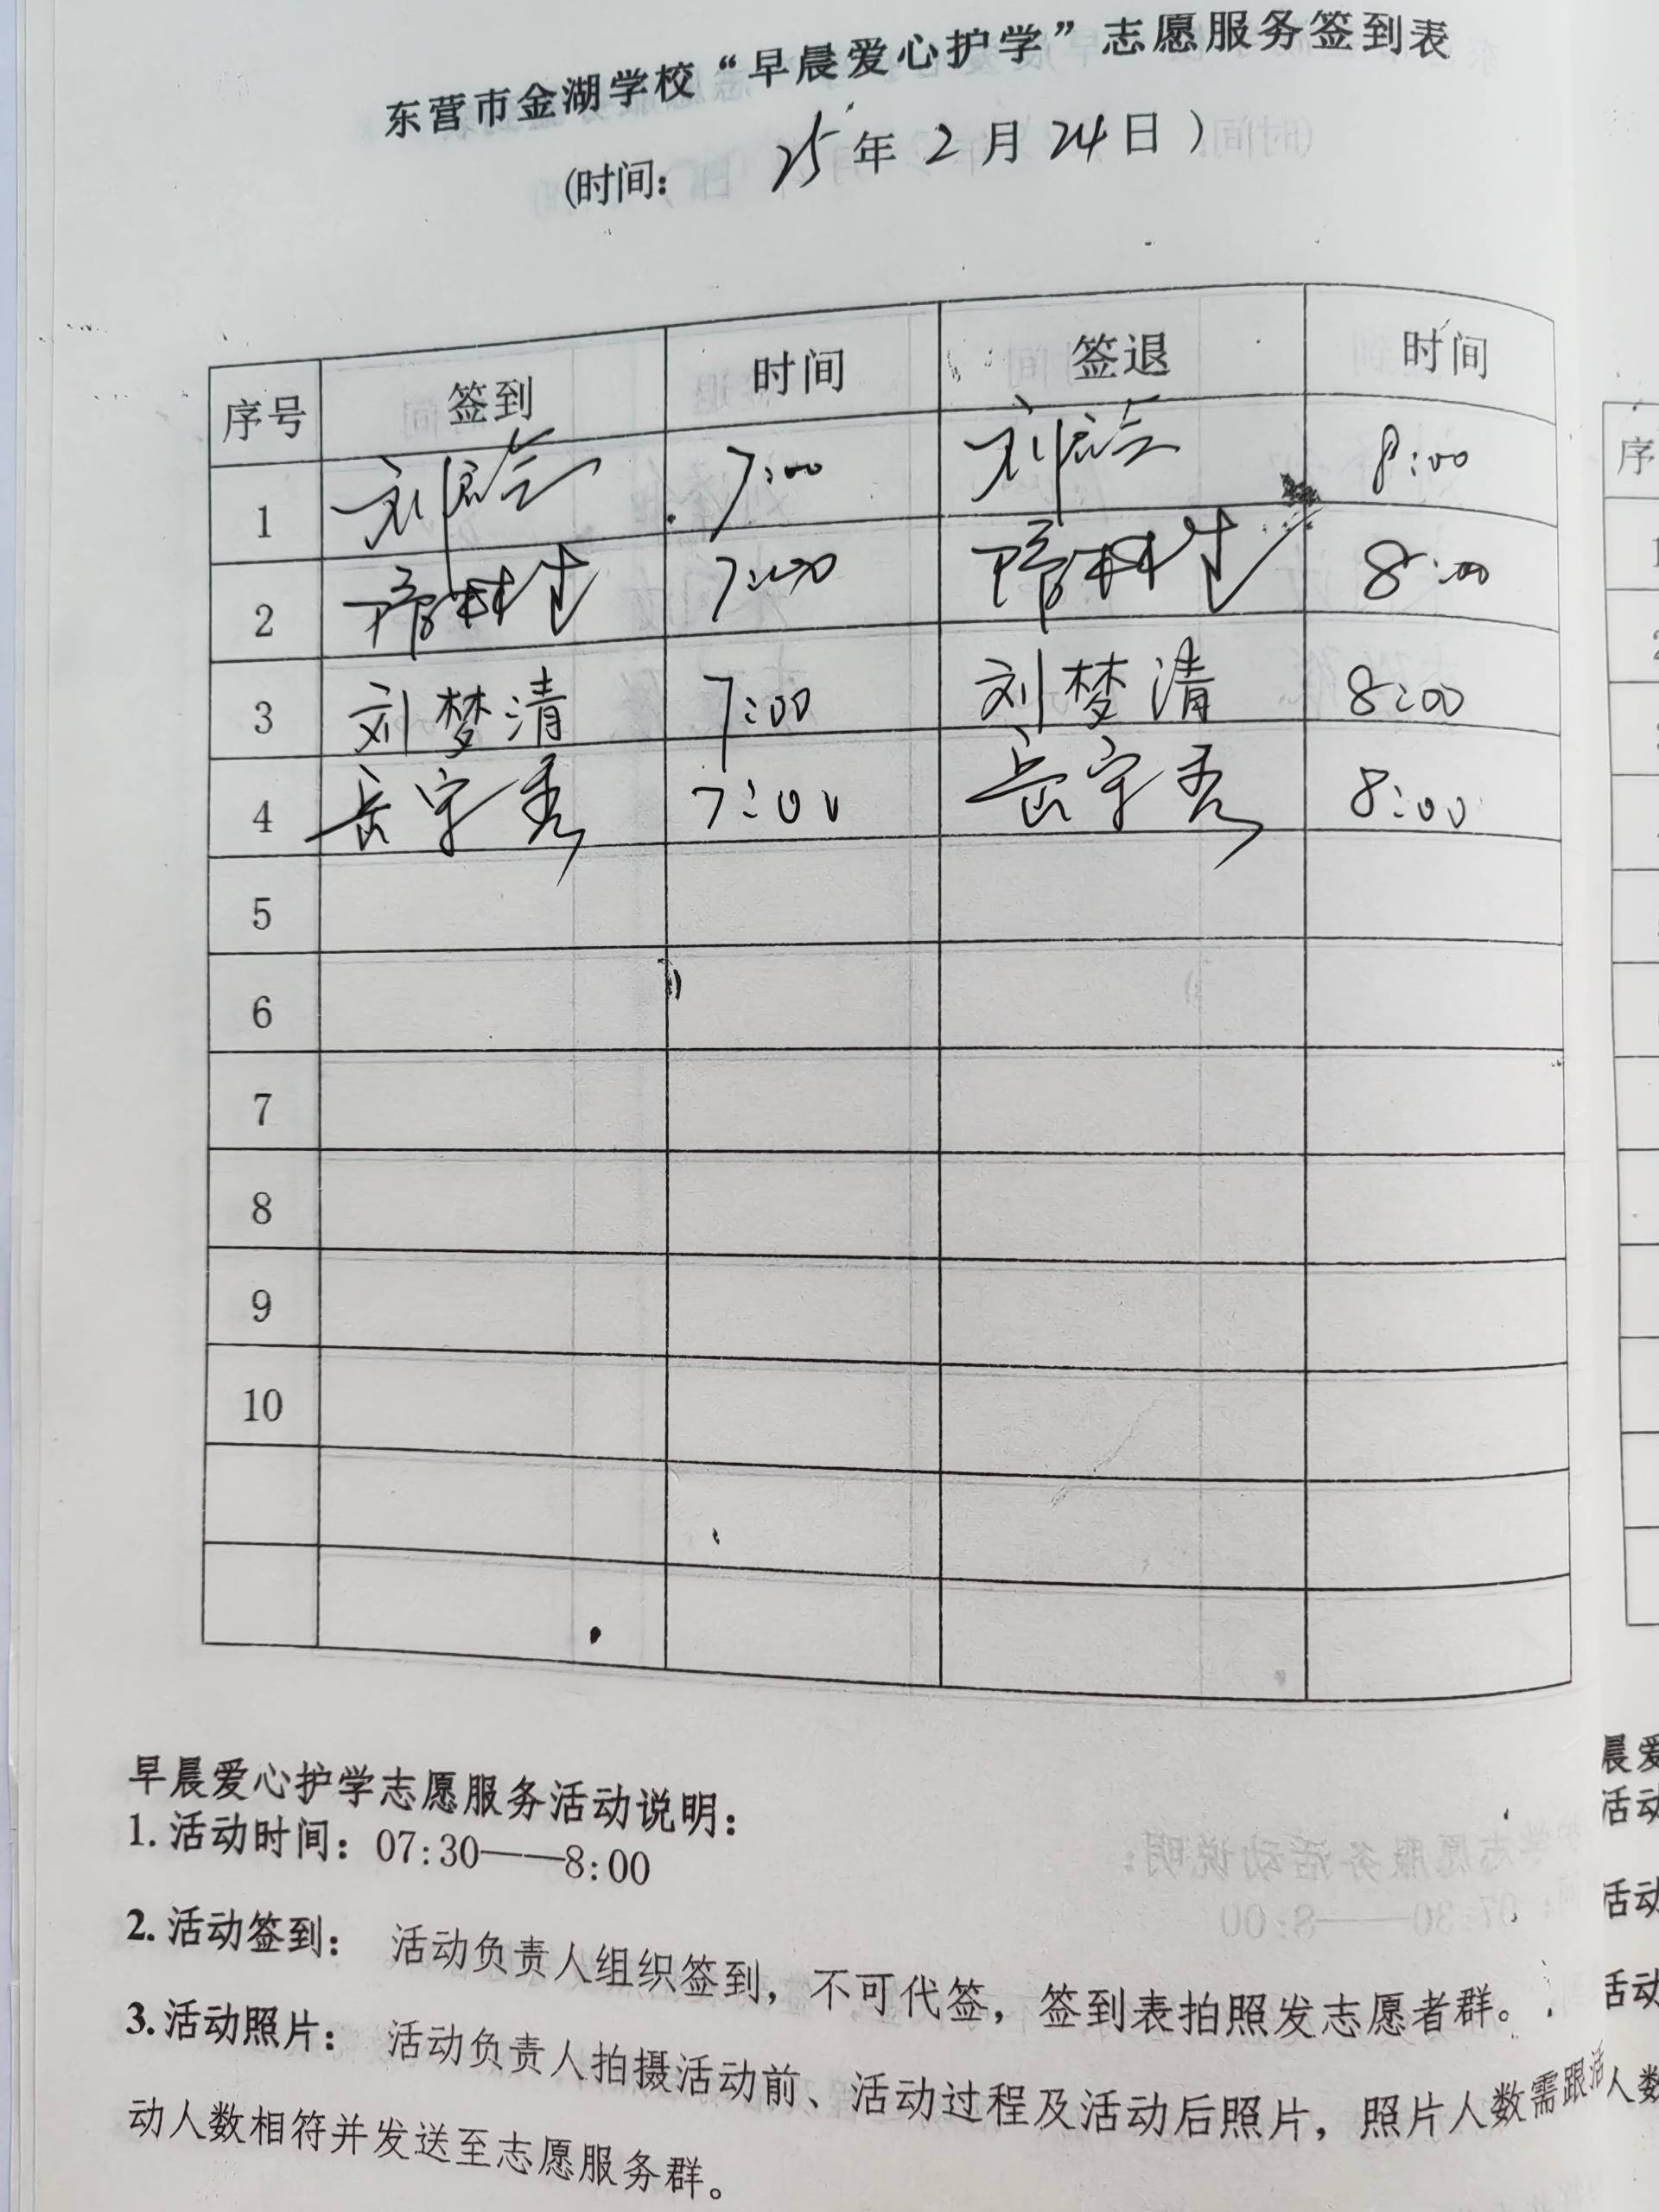 东营市金湖学校“早晨爱心护学”志愿服务签到表
(时间： 25年2月24日)
序号 签到 时间 签退 时间
1 刘 7:00 刘 8:00
2 7:00 8:00
3 刘梦清 7:00 刘梦清 8:00
4 岳宇秀 7:00 岳宇秀 8:00
5
6
7
8
9
10
早晨爱心护学志愿服务活动说明：
1. 活动时间：07:30——8:00
2. 活动签到： 活动负责人组织签到，不可代签，签到表拍照发志愿者群。
3. 活动照片： 活动负责人拍摄活动前、活动过程及活动后照片，照片人数需跟活
动人数相符并发送至志愿服务群。
序
晨爱
活动
活动
活动
人数